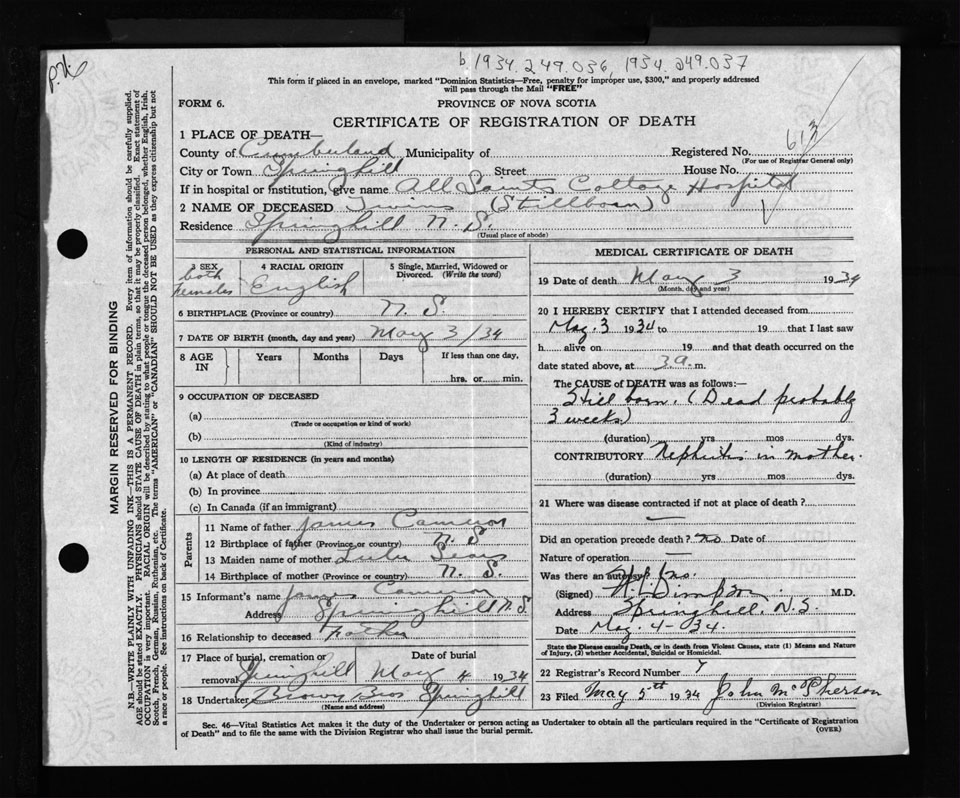 b 1934 249.036, 1934. 249.037
This form if placed in an envelope, marked "Dominion Statistics—Free, penalty for improper use, $300," and properly addressed
will pass through the Mail "FREE"
FORM 6.
PROVINCE OF NOVA SCOTIA
CERTIFICATE OF REGISTRATION OF DEATH
613
1 PLACE OF DEATH—
County of Cumberland Municipality of Registered No.
(For use of Registrar General only)
City or Town Springhill Street House No.
If in hospital or institution, give name All Saints Cottage Hospital
2 NAME OF DECEASED Twins (Stillborn)
Residence Springhill N. S.
(Usual place of abode)
PERSONAL AND STATISTICAL INFORMATION
3 SEX both females
4 RACIAL ORIGIN English
5 Single, Married, Widowed or Divorced. (Write the word)
6 BIRTHPLACE (Province or country) N. S.
7 DATE OF BIRTH (month, day and year) May 3/34
8 AGE IN Years Months Days If less than one day,
hrs. or min.
9 OCCUPATION OF DECEASED
(a)
(Trade or occupation or kind of work)
(b)
(Kind of industry)
10 LENGTH OF RESIDENCE (in years and months)
(a) At place of death
(b) In province
(c) In Canada (if an immigrant)
Parents
11 Name of father James Cameron
12 Birthplace of father (Province or country) N. S
13 Maiden name of mother Lulu Sears
14 Birthplace of mother (Province or country) N. S.
15 Informant's name James Cameron
Address Springhill N. S
16 Relationship to deceased Father
17 Place of burial, cremation or removal Springhill
Date of burial May 4 1934
18 Undertaker Brown Bros Springhill
(Name and address)
MEDICAL CERTIFICATE OF DEATH
19 Date of death May 3 1934
(Month, day and year)
20 I HEREBY CERTIFY that I attended deceased from
May. 3 1934 to 19 that I last saw
h alive on 19 and that death occurred on the
date stated above, at 3 a. m.
The CAUSE of DEATH was as follows:—
Still born. (Dead probably
3 weeks)
(duration) yrs mos dys.
CONTRIBUTORY Nephritis in mother.
(duration) yrs mos dys.
21 Where was disease contracted if not at place of death?
—
Did an operation precede death? no Date of
Nature of operation —
Was there an autopsy? no.
(Signed) Simpson M.D.
Address Springhill, N.S.
Date May 4-34.
State the Disease causing Death, or in death from Violent Causes, state (1) Means and Nature
of Injury, (2) whether Accidental, Suicidal or Homicidal.
22 Registrar's Record Number 7
23 Filed May 5th 1934 John McPherson
(Division Registrar)
Sec. 46—Vital Statistics Act makes it the duty of the Undertaker or person acting as Undertaker to obtain all the particulars required in the "Certificate of Registration
of Death" and to file the same with the Division Registrar who shall issue the burial permit.
(OVER)
MARGIN RESERVED FOR BINDING
N.B.—WRITE PLAINLY WITH UNFADING INK—THIS IS A PERMANENT RECORD. Every item of information should be carefully supplied.
AGE should be stated EXACTLY. PHYSICIANS should STATE CAUSE OF DEATH in plain terms, so that it may be properly classified. Exact statement of
OCCUPATION is very important. RACIAL ORIGIN will be described by stating to what people or tongue the deceased person belonged, whether English, Irish,
Scotch, French, German, Russian, Ruthenian, etc. The terms "AMERICAN" or "CANADIAN" SHOULD NOT BE USED as they express citizenship but not
a race or people. See instructions on back of Certificate.